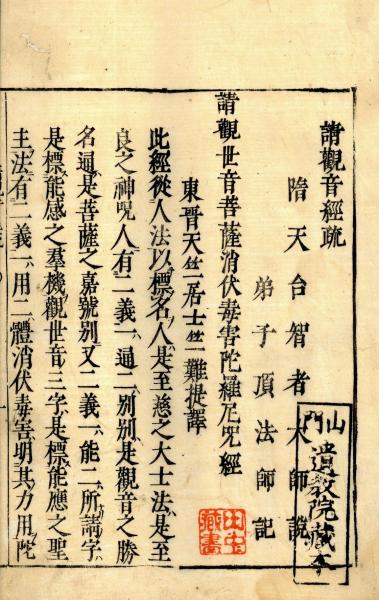 請觀音經疏
隋天台智者大師說
弟子頂法師記
請觀世音菩薩消伏毒害陀羅尼咒經
東晉天竺居士竺難提譯
此經從人法以標名人是至慈之大士法是至
良之神呪人有二義一通二別別是觀音之勝
名通是菩薩之嘉號別又二義一能二所請字
是標能感之羣機觀世音三字是標能應之聖
主法有二義一用二體消伏毒害明其力用陀
山門
遺教院藏本
藏書